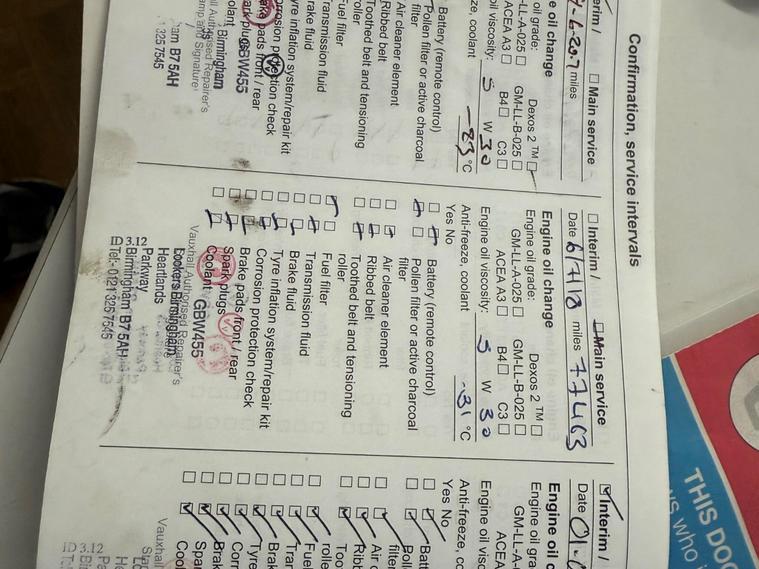 Confirmation, service intervals
Interim /
Main service
miles
Engine oil change
Engine oil grade:
Dexos 2 TM
GM-LL-A-025
GM-LL-B-025
ACEA A3
B4
C3
Engine oil viscosity: 5 W 30
Anti-freeze, coolant
°C
Yes No
Battery (remote control)
Pollen filter or active charcoal
filter
Air cleaner element
Ribbed belt
Toothed belt and tensioning
roller
Fuel filter
Transmission fluid
Brake fluid
Tyre inflation system/repair kit
Corrosion protection check
Brake pads front / rear
Spark plugs
Coolant
GBW455
Birmingham
B7 5AH
325 7545
Interim /
Main service
Date 6/7/18 miles 77463
Engine oil change
Engine oil grade:
Dexos 2 TM
GM-LL-A-025
GM-LL-B-025
ACEA A3
B4
C3
Engine oil viscosity: 5 W 30
Anti-freeze, coolant -31 °C
Yes No
Battery (remote control)
Pollen filter or active charcoal
filter
Air cleaner element
Ribbed belt
Toothed belt and tensioning
roller
Fuel filter
Transmission fluid
Brake fluid
Tyre inflation system/repair kit
Corrosion protection check
Brake pads front / rear
Spark plugs
Coolant
GBW455
Vauxhall Authorised Repairer's
Birmingham
3.12
Parkway
Heartlands
Birmingham B7 5AH
Tel:- 0121 325 7545
Interim /
Date 01.
Engine oil c
Engine oil gra
GM-LL-A-
ACEA
Engine oil visc
Anti-freeze, co
Yes No
Batt
Poll
filter
Air c
Ribb
Toot
rolle
Fuel
Tran
Brak
Tyre
Corr
Brak
Spar
Cool
Vauxhal
3.12
THIS DOC